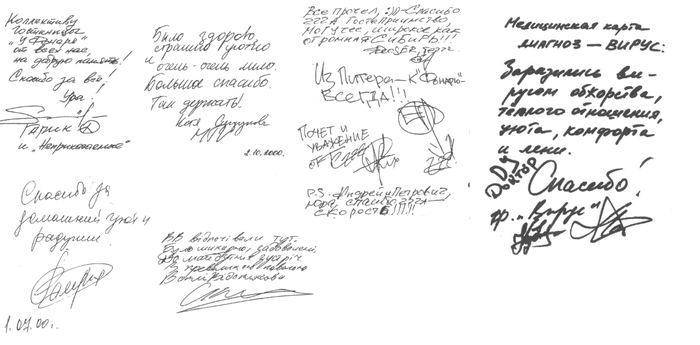 Коллективу
гостиницы
"У Фонаря"
от всех нас,
на добрую память!
Спасибо за всё!
Ура!
Гарик
и "Неприкасаемые"
Было здорово,
страшно уютно
и очень-очень мило.
Большое спасибо.
Так держать!
Катя
2.10.2000.
Все прочел, :))) Спасибо
222А Гостеприимство,
Могучее, широкое как
огромная СиБиРЬ!!!
Из Питера — к "Фонарю"
ВСЕГДА!!!
ПОЧЕТ И
УВАЖЕНИЕ
от
P.S. Андрей Петрович,
Юра, спасибо 222А
СКОРОСТЬ!!!!
Медицинская карта
ДИАГНОЗ — ВИРУС:
Заразились ви-
русом обжорства,
тёплого отношения,
уюта, комфорта
и лени.
ДОКТОР
Спасибо!
гр. "Вирус"
Спасибо за
домашний уют и
радушие.
1.07.00г.
ВВ відпочівали тут.
Було шикарно, задоволені.
До майбутніх зустріч.